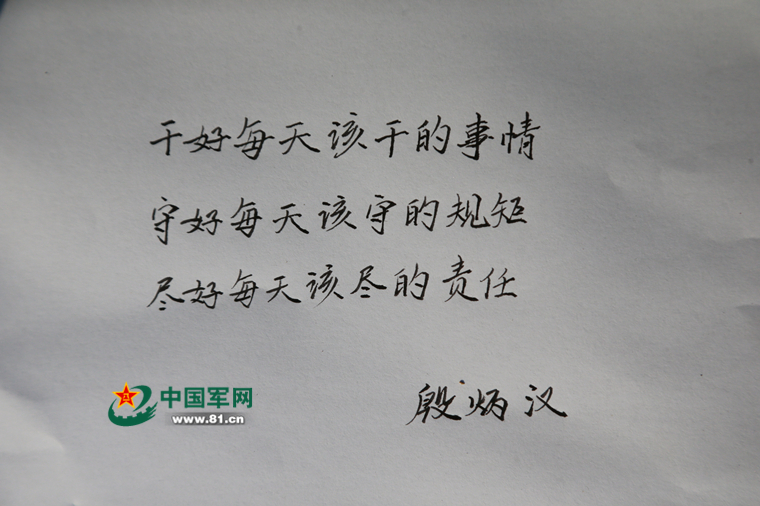 干好每天该干的事情
守好每天该守的规矩
尽好每天该尽的责任
殷炳汉
中国军网
www.81.cn